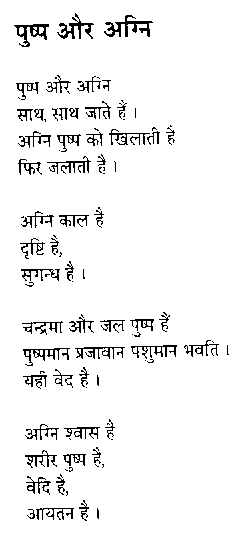 पुष्प और अग्नि
पुष्प और अग्नि
साथ, साथ जाते हैं ।
अग्नि पुष्प को खिलाती है
फिर जलाती है ।
अग्नि काल है
दृष्टि है,
सुगन्ध है ।
चन्द्रमा और जल पुष्प हैं
पुष्पमान प्रजावान पशुमान भवति ।
यही वेद है ।
अग्नि श्वास है
शरीर पुष्प है,
वेदि है,
आयतन है ।